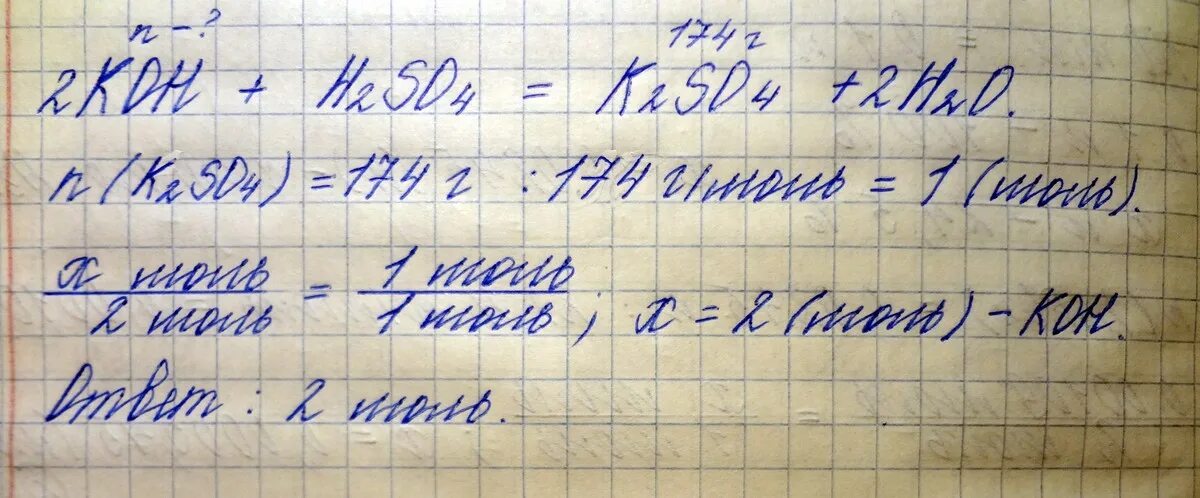 n – ? 174 г
2KOH + H₂SO₄ = K₂SO₄ + 2H₂O.
n (K₂SO₄) = 174 г : 174 г/моль = 1 (моль).
x моль / 2 моль = 1 моль / 1 моль ; x = 2 (моль) – KOH.
Ответ : 2 моль.